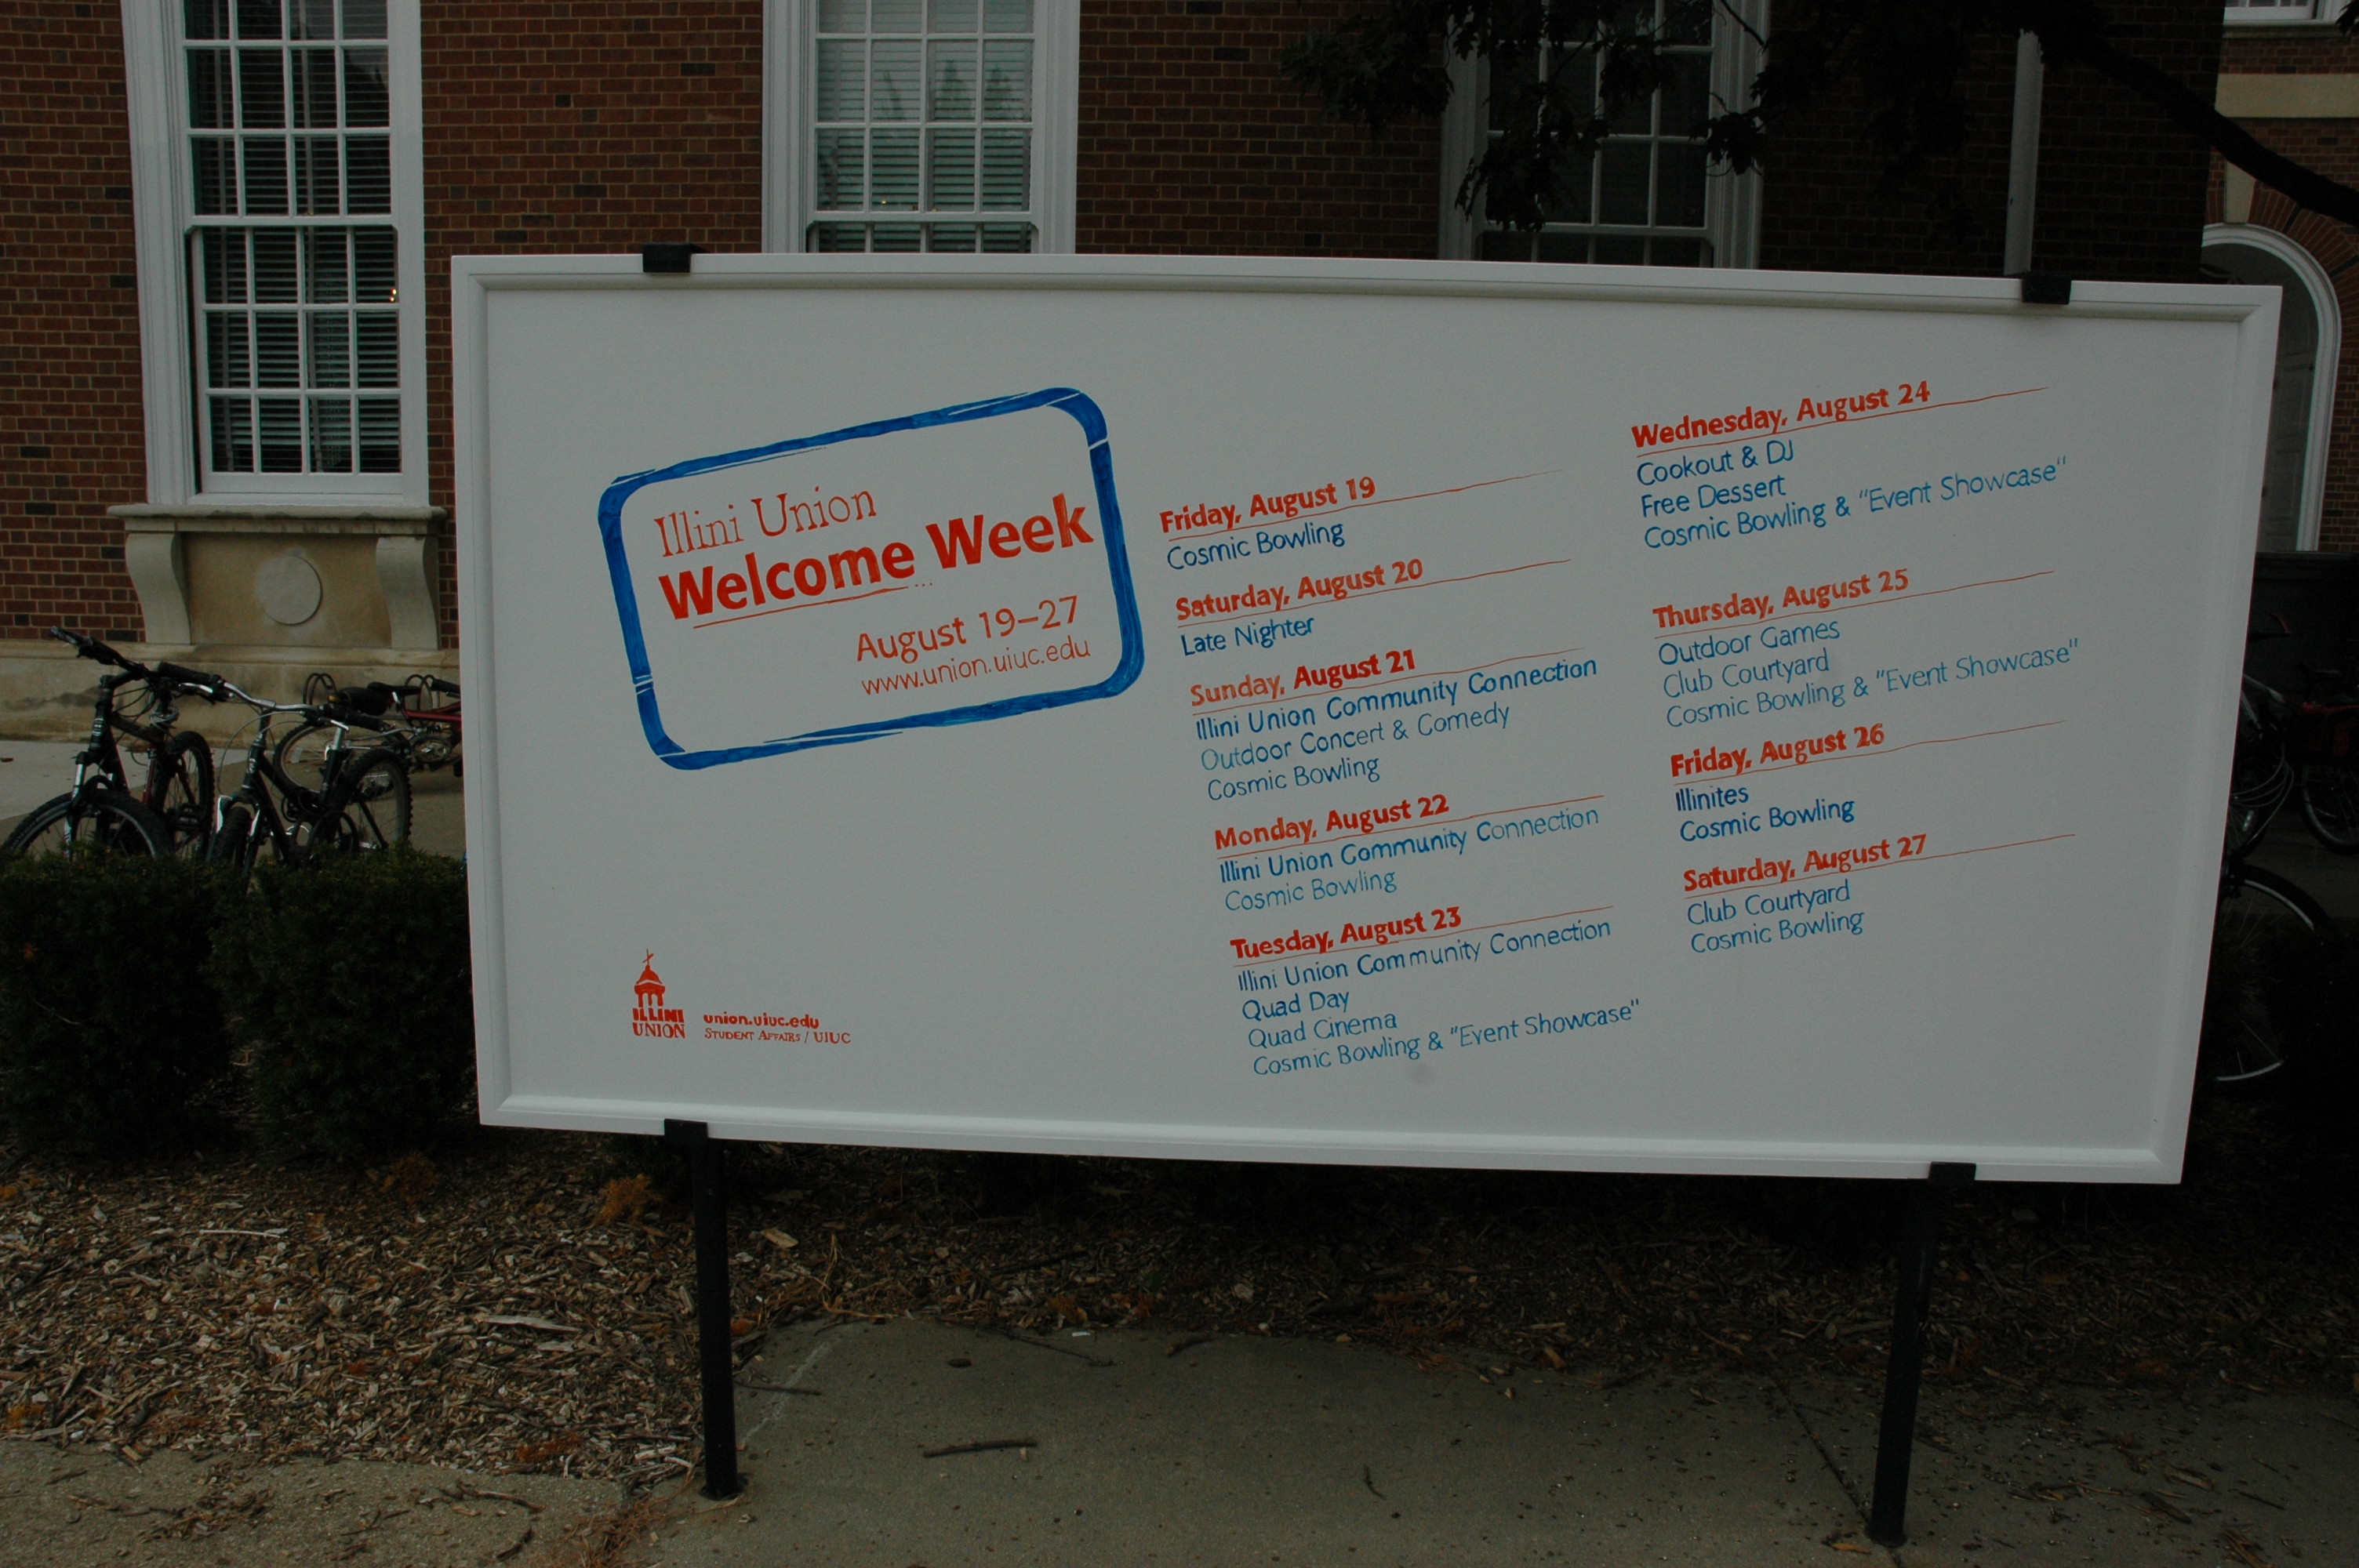 Illini Union
Welcome Week
...
August 19–27
www.union.uiuc.edu
ILLINI
UNION
union.uiuc.edu
STUDENT AFFAIRS / UIUC
Friday, August 19
Cosmic Bowling
Saturday, August 20
Late Nighter
Sunday, August 21
Illini Union Community Connection
Outdoor Concert & Comedy
Cosmic Bowling
Monday, August 22
Illini Union Community Connection
Cosmic Bowling
Tuesday, August 23
Illini Union Community Connection
Quad Day
Quad Cinema
Cosmic Bowling & "Event Showcase"
Wednesday, August 24
Cookout & DJ
Free Dessert
Cosmic Bowling & "Event Showcase"
Thursday, August 25
Outdoor Games
Club Courtyard
Cosmic Bowling & "Event Showcase"
Friday, August 26
Illinites
Cosmic Bowling
Saturday, August 27
Club Courtyard
Cosmic Bowling